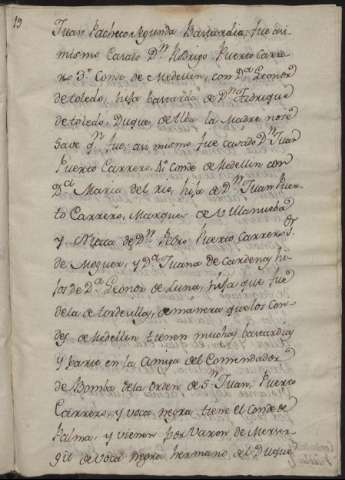 19
Juan Pacheco segunda bastardia, fue asi
mismo casado Dn. Rodrigo Puerto Carre
ro 3º. Conde de Medellin, con Dª. Leonor
de toledo, hija bastarda de Dn. Fadrique
de toledo, Duque de Alba la Madre no se
save qn. fue, asi mismo fue casado Dn. Juan
Puerto Carrero, 4º. Conde de Medellin con
Dª. Maria del Rio, hija de Dn. Juan Puer
to Carrero, Marques de Villanueba
y Nieta de Dn. Pedro Puerto Carrero Sr.
de Moguer, y Dª. Juana de Cardenas, hi
jos de Dª. Leonor de Luna, hija que fue
de la de tordesillas, de manera que los Con
des de Medellin tienen muchas bastardias
y barios en la Amiga del Comendador
de Bamba de la orden de Sn. Juan, Puerto
Carrero, y voca negra, tiene el Conde de
Palma, y vienen por Varon de Micer
gil de voca negra hermano, del Duque